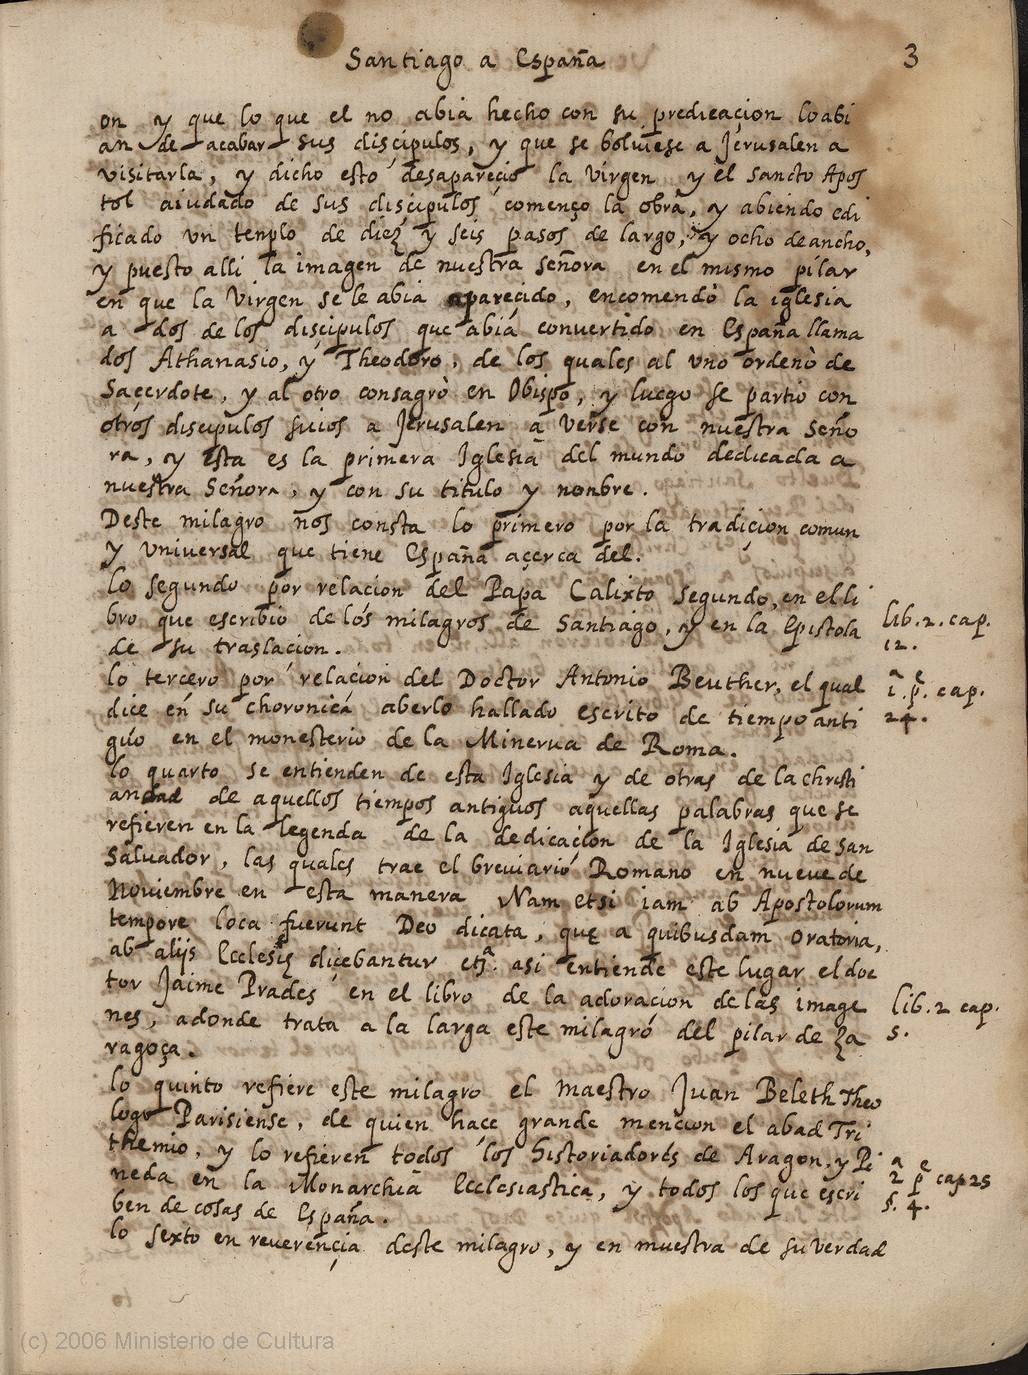 Santiago a España
3
on y que lo que el no abia hecho con su predicaçion lo abi
an de acabar sus disçipulos, y que se bolviese a Jerusalen a
visitarla, y dicho esto desapareçio la Virgen y el sancto Apos
tol aiudado de sus disçipulos començo la obra, y abiendo edi
ficado un tenplo de diez y seis pasos de largo, y ocho de ancho,
y puesto alli la imagen de nuestra señora en el mismo pilar
en que la Virgen se le abia apareçido, encomendò la iglesia
a dos de los disçipulos que abia convertido en España llama
dos Athanasio, y Theodoro, de los quales al uno ordenò de
Saçerdote, y al otro consagrò en Obispo, y luego se partio con
otros discipulos suios a Jerusalen a verse con nuestra Seño
ra, y esta es la primera Iglesia del mundo dedicada a
nuestra Señora, y con su titulo y nonbre.
Deste milagro nos consta lo primero por la tradiçion comun
y universal que tiene España açerca del.
lo segundo por relacion del Papa Calixto segundo, en el li
bro que escribio de los milagros de Santiago, y en la Epistola
de su traslacion.
lib. 2. cap.
12.
lo tercero por relacion del Doctor Antonio Beuther, el qual
dice en su choronica aberlo hallado escrito de tiempo anti
guo en el monesterio de la Minerva de Roma.
1.ª p.e cap.
24.
lo quarto se entienden de esta Iglesia y de otras de la christi
andad de aquellos tiempos antiguos aquellas palabras que se
refieren en la legenda de la dedicaçion de la Iglesia de san
Salvador, las quales trae el breviario Romano en nueve de
Noviembre en esta manera Nam etsi iam ab Apostolorum
tempore loca fuerunt Deo dicata, quę a quibusdam oratoria,
ab aliis Ecclesię dicebantur etª. asi entiende este lugar el doc
tor Jaime Prades en el libro de la adoracion de las image
nes, adonde trata a la larga este milagro del pilar de Za
ragoça.
lib. 2 cap.
5.
lo quinto refiere este milagro el maestro Juan Beleth Theo
logo Parisiense, de quien hace grande mencion el abad Tri
themio, y lo refieren todos los historiadores de Aragon, y Pi
neda en la Monarchia Ecclesiastica, y todos los que escri
ben de cosas de España.
2ª pe cap 25
§. 4.
lo sexto en reverençia deste milagro, y en muestra de su verdad
lo
(c) 2006 Ministerio de Cultura